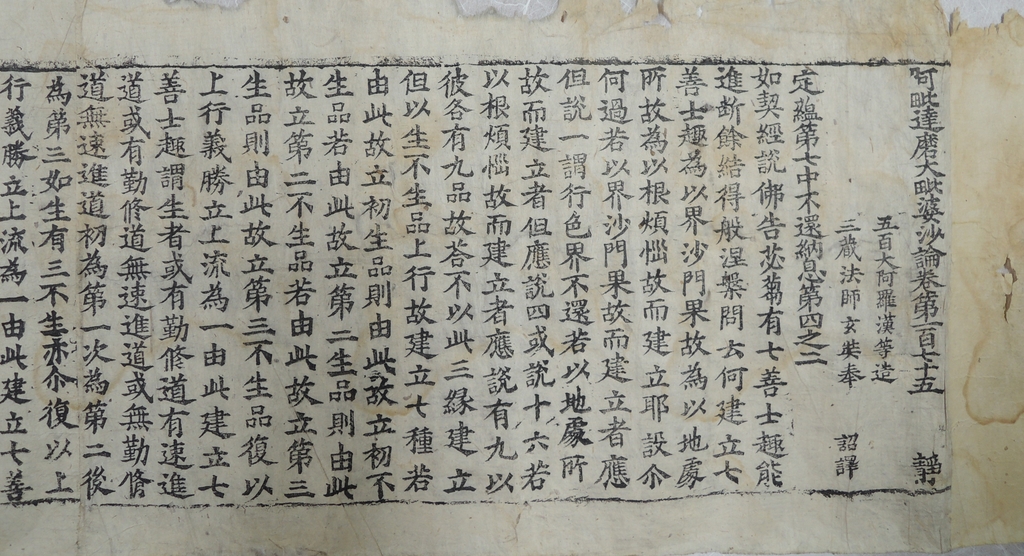 阿毗達磨大毗婆沙論卷第一百七十五
五百大阿羅漢等造
三藏法師玄奘奉 詔譯
定蘊第七中不還納息第四之二
如契經說佛告苾芻有七善士趣能
進斷餘結得般涅槃問云何建立七
善士趣為以界沙門果故為以地處
所故為以根煩惱故而建立耶設尒
何過若以界沙門果故而建立者應
但說一謂行色界不還若以地處所
故而建立者但應說四或說十六若
以根煩惱故而建立者應說有九以
彼各有九品故荅不以此三緣建立
但以生不生品上行故建立七種若
由此故立初生品則由此故立初不
生品若由此故立第二生品則由此
故立第二不生品若由此故立第三
生品則由此故立第三不生品復以
上行義勝立上流為一由此建立七
善士趣謂生者或有勤修道有速進
道或有勤修道無速進道或無勤修
道無速進道初為第一次為第二後
為第三如生有三不生亦尒復以上
行義勝立上流為一由此建立七善